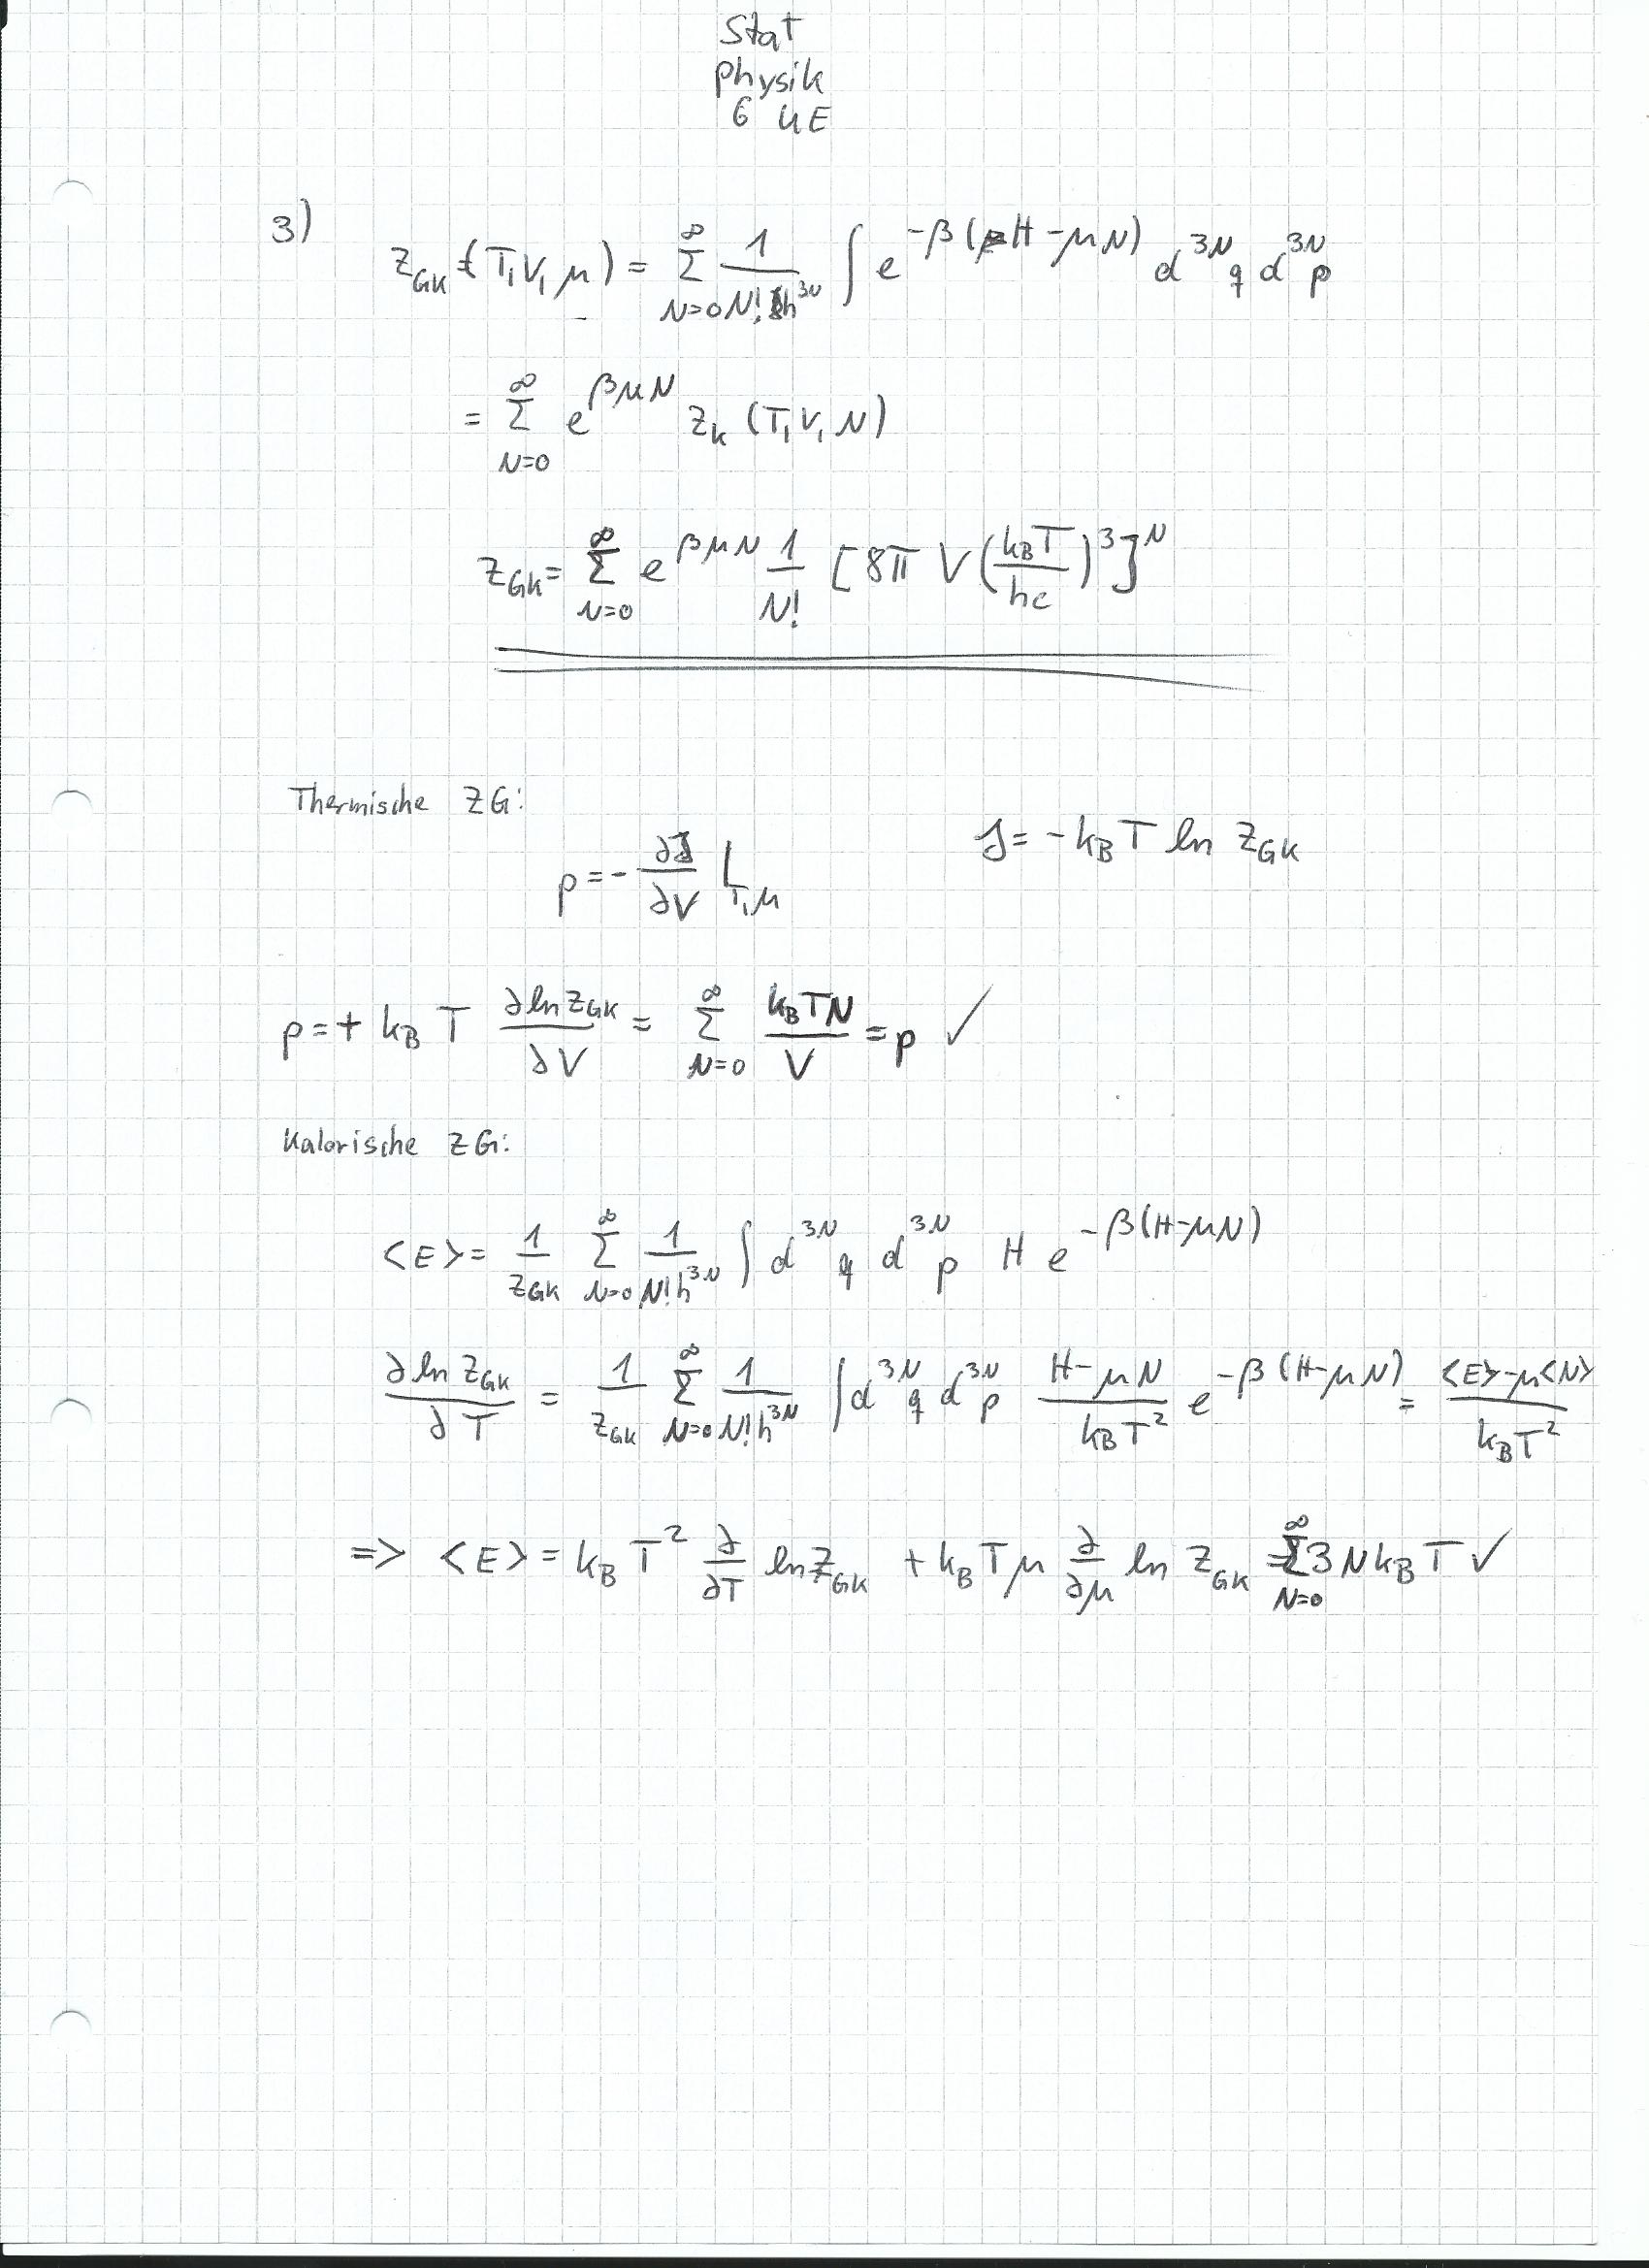 Stat
physik
6 UE
3) Z_GK (T, V, μ) = ∑_{N=0}^{∞} 1/(N! h^{3N}) ∫ e^{-β(H-μN)} d^{3N}q d^{3N}p
= ∑_{N=0}^{∞} e^{βμN} Z_k (T, V, N)
Z_GK = ∑_{N=0}^{∞} e^{βμN} 1/N! [8π V (k_B T/hc)^3]^N
Thermische ZG:
p = - ∂J/∂V |_{T, μ} J = -k_B T ln Z_GK
p = + k_B T ∂ln Z_GK/∂V = ∑_{N=0}^{∞} k_B T N/V = p ✓
Kalorische ZG:
<E> = 1/Z_GK ∑_{N=0}^{∞} 1/(N! h^{3N}) ∫ d^{3N}q d^{3N}p H e^{-β(H-μN)}
∂ ln Z_GK/∂T = 1/Z_GK ∑_{N=0}^{∞} 1/(N! h^{3N}) ∫ d^{3N}q d^{3N}p (H-μN)/(k_B T^2) e^{-β(H-μN)} = (<E>-μ<N>)/(k_B T^2)
=> <E> = k_B T^2 ∂/∂T ln Z_GK + k_B T μ ∂/∂μ ln Z_GK = ∑_{N=0}^{∞} 3 N k_B T ✓